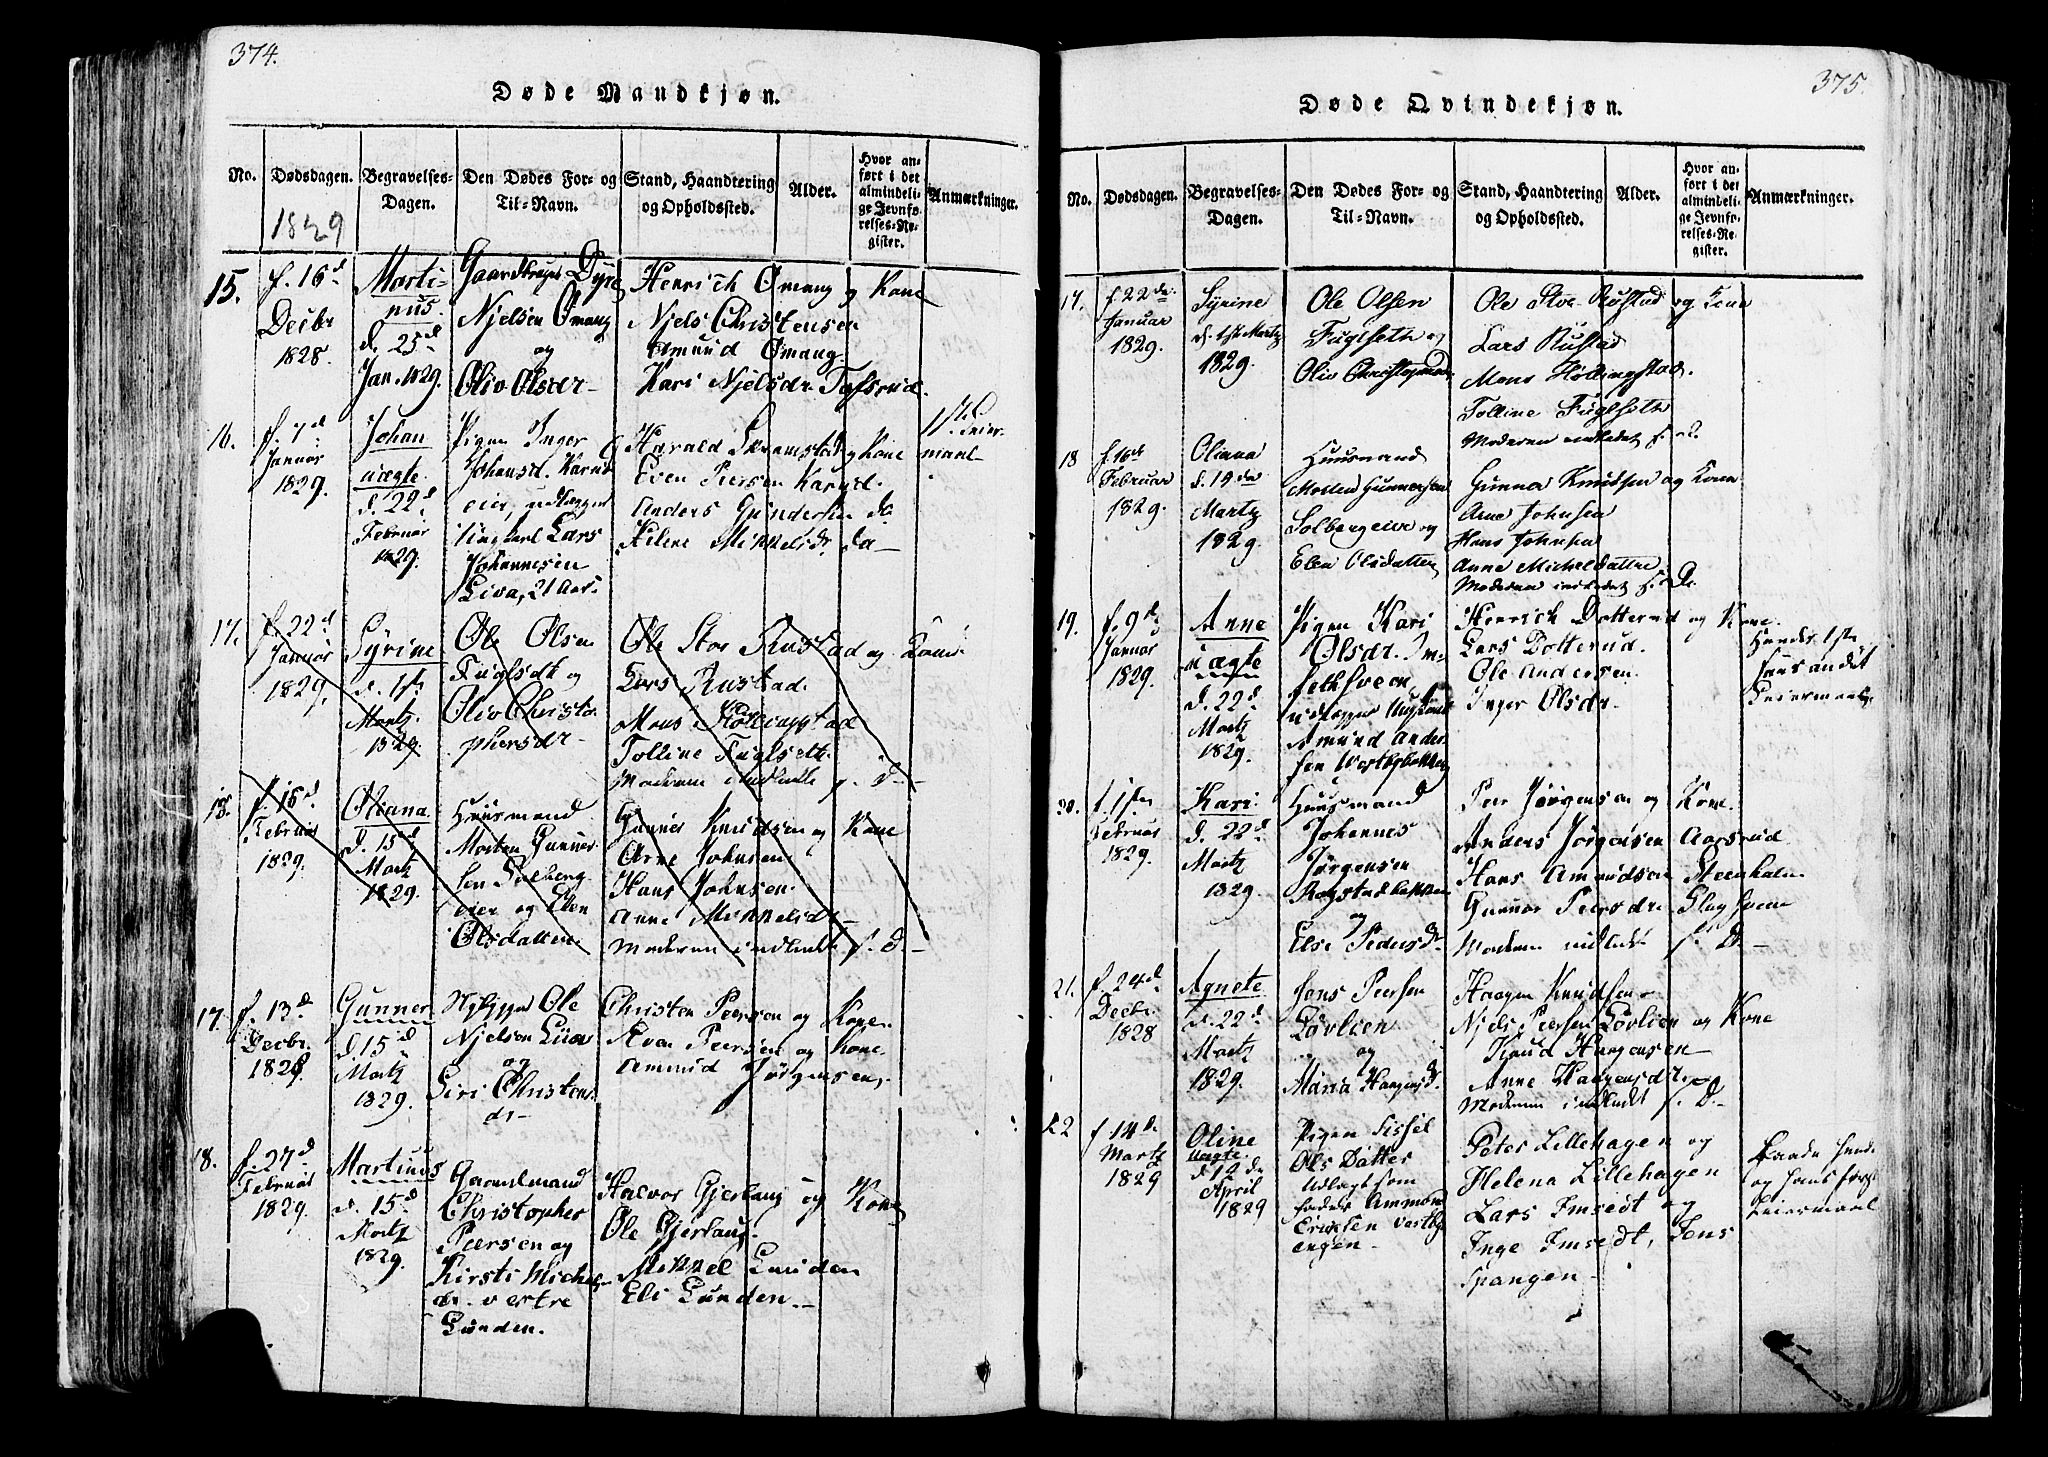 374.
Døde Mandkjøn.
No.
Dødsdagen.
Begravelses-
Dagen.
Den Dødes For- og
Til-Navn.
Stand, Haandtering
og Opholdssted.
Alder.
Hvor an-
ført i det
almindeli-
ge Jevnfø-
relses-Re-
gister.
Anmærkninger.
1829
15.
f. 16d
Decbr
1828.
Marti-
nus.
d. 25d
Jan. 1829.
Njelsen Omang
og
Oliv Olsdr
Henrich Omang og Kone
Njels Christensen
Amund Omang
Kari Njelsdr
16.
f. 7d
Januar
1829.
Johan
uægte
d. 22d
Februar
1829.
Pigen Inger
Johansd.
eier, udlægger
Lars
Johannesen
Harald Skramstad og Kone
Even Peersen
Anders Gundersen do
Mikkelsdr. do
17.
f. 22d
Januar
1829.
Syrine
d. 1ste
Martz.
1829.
Ole Olsen
Fuglset og
Oliv Christo-
phersdr
Ole Stor Rustad og Kone
Lars Rustad.
Mons
Tolline Fuglseth
Moderen indledt s. D.
18.
f. 16d.
Februar
1829.
Oliana
d. 15d
Martz
1829.
Huusmand
Morten Gunner-
sen Solberg-
eier og Elen
Olsdatter.
Gunner Knudsen og Kone
Arne Johnsen
Hans Johnsen.
Anne Mikkelsdr
Moderen indledt s. D.
17.
f. 13d
Decbr.
1828.
Gunner
d. 15d
Martz
1829.
Ole
Njelsen
og
Siri Christens
dr
Christen Peersen og Kone.
Peersen og Kone.
Amund Jørgensen.
18.
f. 27d
Februar
1829.
Martinus
d. 15d
Martz
1829.
Gaardmand
Christopher
Peersen og
Kirsti Michels
dr. vestre
Lunden.
Halvor Gjerlaug og Kone
Ole Gjerlaug.
Mikkel Lunden
Eli Lunden.
375.
Døde Qvindekjøn.
No.
Dødsdagen.
Begravelses-
Dagen.
Den Dødes For- og
Til-Navn.
Stand, Haandtering
og Opholdssted.
Alder.
Hvor an-
ført i det
almindeli-
ge Jevnfø-
relses-Re-
gister.
Anmærkninger.
17.
f. 22de
Januar
1829.
Syrine
d. 1ste Martz
1829.
Ole Olsen
Fuglseth og
Oliv
Ole Stoe Rustad og Kone
Lars Rustad
Mons
Tolline Fuglseth
Moderen indledet s. d.
18
f. 16de
Februar
1829.
Oliana
d. 15de
Martz
1829.
Huusmand
Morten Gunnersen
Solbergeier og
Elen Olsdatter
Gunner Knudsen og Kone
Arne Johnsen
Hans Johnsen
Anne Michelsdatter
Moderen indledet s. D.
19.
f. 9d
Januar
1829.
Anne
uægte
d. 22d
Martz
1829.
Pigen Kari
Olsdr.
udlægger
Amund Ander-
sen
Henrich Dotterud og Kone.
Lars Dotterud.
Ole Andersen.
Inger Olsdr.
Hendes 1ste
hans andet
Leiermaal.
20.
f. 1ste
Februar
1829.
Kari.
d. 22d
Martz
1829.
Huusmand
Johannes
Jørgensen
og
Else Pedersdr.
Peer Jørgensen og Kone.
Anders Jørgensen
Hans Amundsen
Gunner Peersdr.
Moderen indledt s. D.
21.
f. 24d
Decbr.
1828
Agnete
d. 22d
Martz
1829.
Jens Peersen
Løvlien
og
Maria Haagensdr.
Haagen Knudsen
Njels Peersen Løvlien og Kone
Knud Haagensen
Anne Haagensdr.
Moderen indledt s. D.
22
f 14de
Martz
1829
Oline
uægte.
d 12de
April
1829
Pigen Sissel
Ols Datter
Udlagt som
fader Ammond
Ericksen Vestby
engen
Peter Lillehagen og
Helena Lillehagen
Lars Imsedt og
Inge Imsedt, Jens
Spangen
Baade hendes
og hans første
Leiermaal